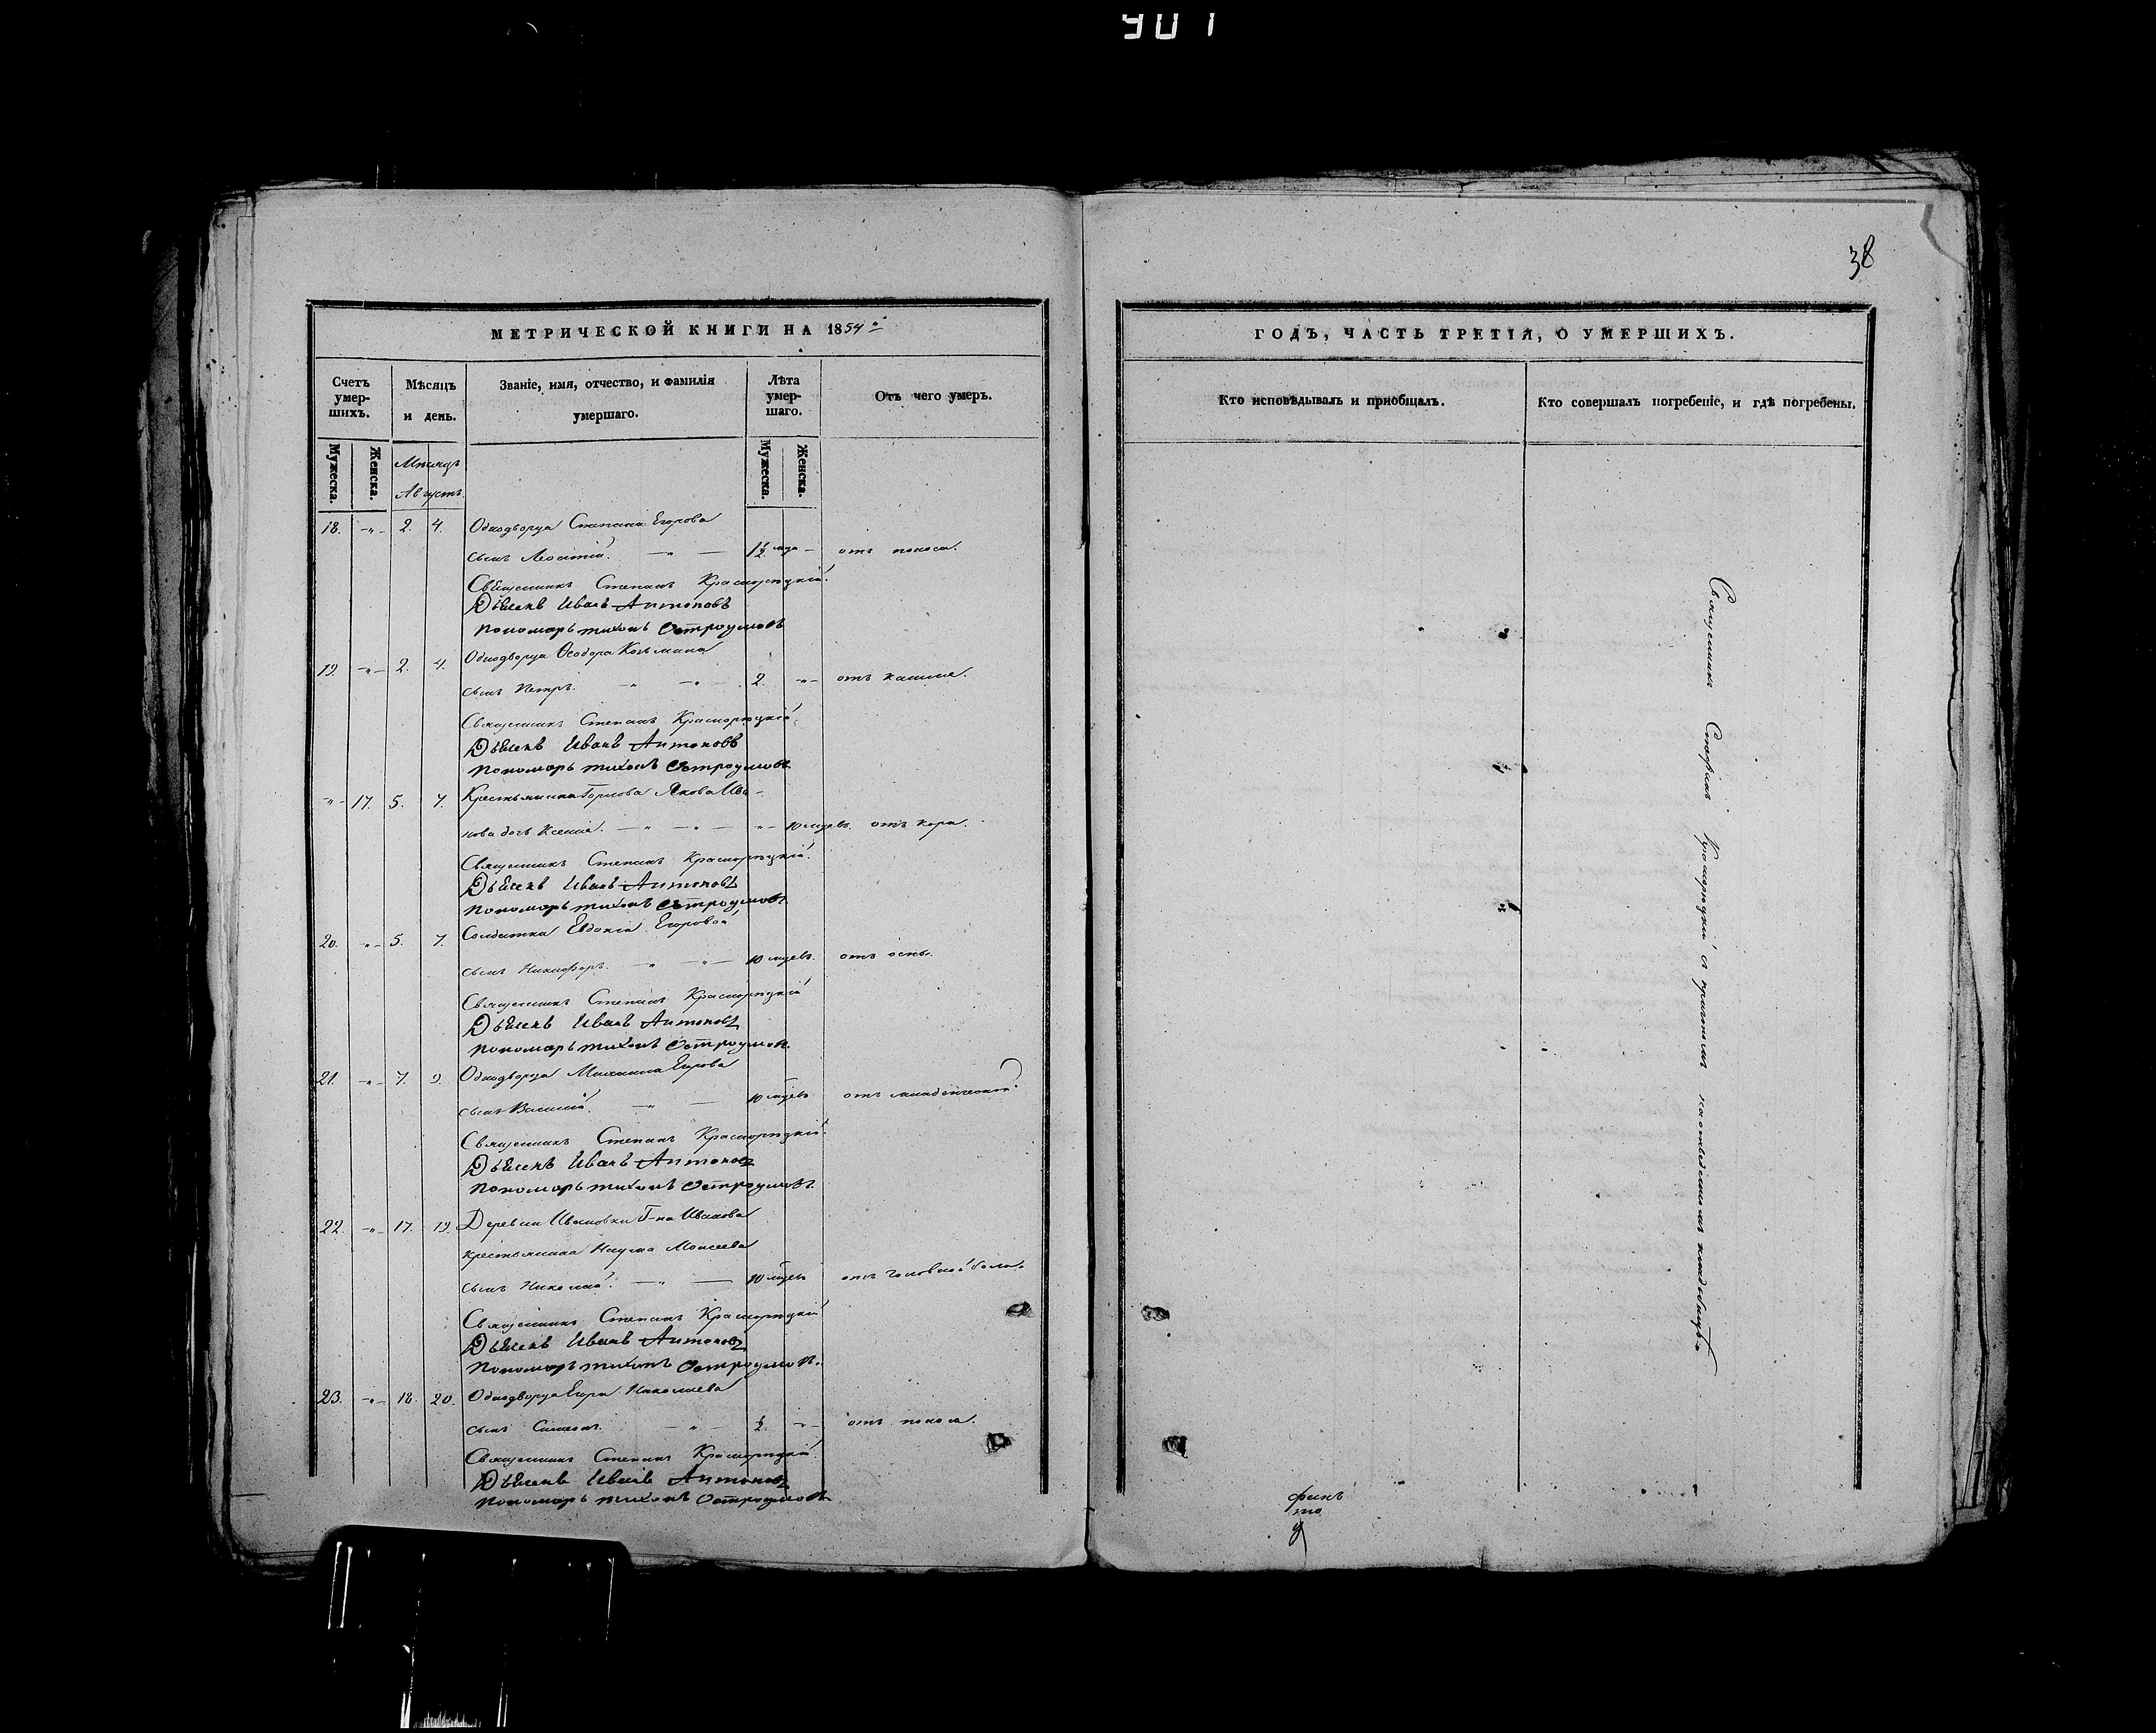 901
38
МЕТРИЧЕСКОЙ КНИГИ НА 1854
Счетъ умер-шихъ.
Мѣсяцъ и день.
Званіе, имя, отчество, и фамилія умершаго.
Лѣта умер-шаго.
Отъ чего умеръ.
Мужеска. Женска. Мужеска. Женска.
Мѣсяцъ
Августъ.
18. -"- 2. 4. Однодворца Степана Егорова
сынъ Леонтій. 1½ года - отъ поноса.
Священникъ Степанъ Красноряцкій
Дьячекъ Иванъ Антоновъ
Пономарь Тихонъ Остроумовъ
19. -"- 2. 4. Однодворца Ѳеодора Козьмина
сынъ Петръ. 2. -"- отъ кашля.
Священникъ Степанъ Красноряцкій
Дьячекъ Иванъ Антоновъ
Пономарь Тихонъ Остроумовъ
-"- 17. 5. 7. Крестьянина Якова Ива-
нова дочь Ксенія. 10 мцевъ. отъ кори.
Священникъ Степанъ Красноряцкій
Дьячекъ Иванъ Антоновъ
Пономарь Тихонъ Остроумовъ
20. -"- 5. 7. Солдатки Евдокіи Егоровой
сынъ Никифоръ. 10 мцевъ. отъ оспы.
Священникъ Степанъ Красноряцкій
Дьячекъ Иванъ Антоновъ
Пономарь Тихонъ Остроумовъ
21. -"- 7. 9. Однодворца Михаила Егорова
сынъ Василій. 10 мцевъ отъ младенческой.
Священникъ Степанъ Красноряцкій
Дьячекъ Иванъ Антоновъ
Пономарь Тихонъ Остроумовъ
22. -"- 17. 19. Деревни Ивановки Г-на Иванова
крестьянина Наума Моисеева
сынъ Николай. 10 мцевъ отъ головной боли.
Священникъ Степанъ Красноряцкій
Дьячекъ Иванъ Антоновъ
Пономарь Тихонъ Остроумовъ.
23. -"- 18. 20. Однодворца Егора Николаева
сынъ Симеонъ. ½ -"- отъ поноса.
Священникъ Степанъ Красноряцкій
Дьячекъ Иванъ Антоновъ
Пономарь Тихонъ Остроумовъ
ГОДЪ, ЧАСТЬ ТРЕТІЯ, О УМЕРШИХЪ.
Кто исповѣдывалъ и пріобщалъ.
Кто совершалъ погребеніе, и гдѣ погребены.
Священникъ Стефанъ Красноряцкій съ причтомъ на отведенномъ кладбищѣ.